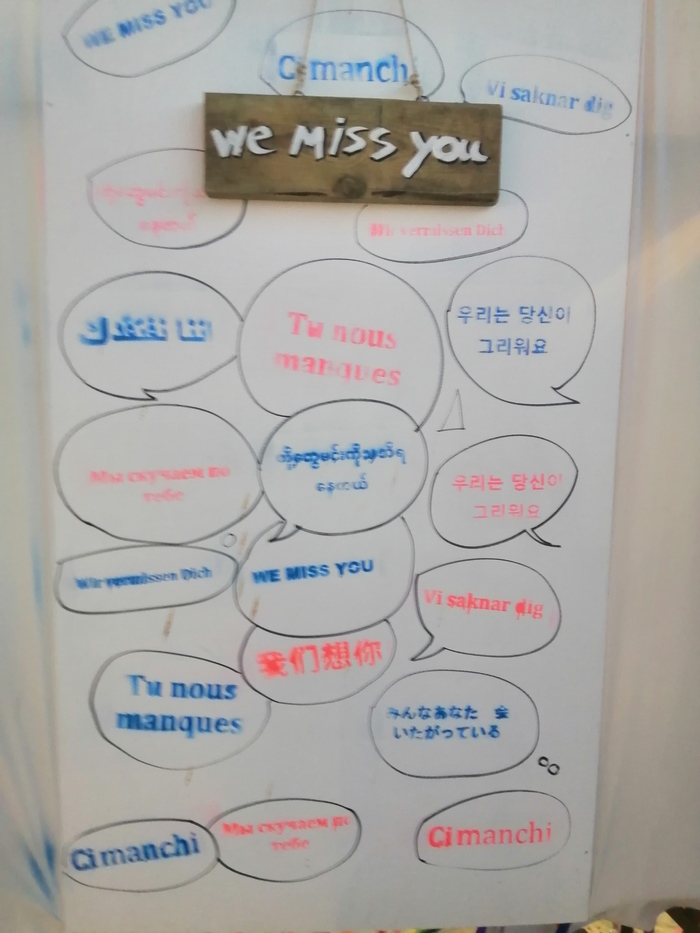 WE MISS YOU
Cimanch
Vi saknar dig
we Miss you
Wir vermissen Dich
Tu nous
manques
우리는 당신이
그리워요
Мы скучаем по
тебе
နေတယ်
우리는 당신이
그리워요
Wir vermissen Dich
WE MISS YOU
Vi saknar dig
我们想你
Tu nous
manques
みんなあなた 会
いたがっている
Cimanchi
Мы скучаем по
тебе
Cimanchi